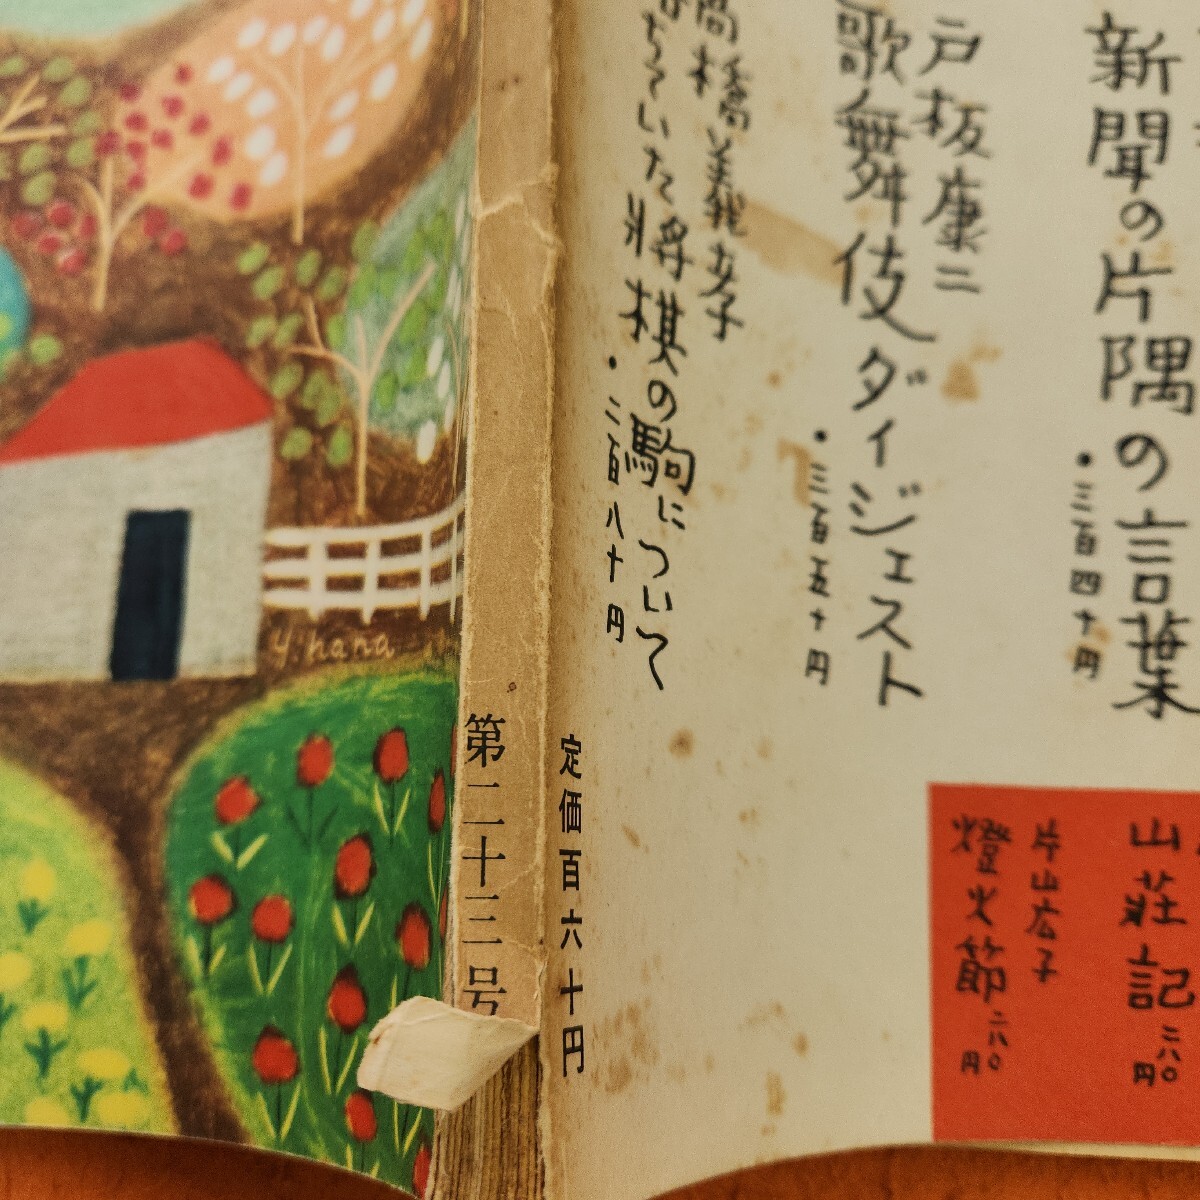 新聞の片隅の言葉
・三百四十円
戸板康二
歌舞伎ダイジェスト
・三百五十円
高橋義孝
落ちていた将棋の駒について
・二百八十円
山荘記
二八〇
円
片山広子
燈火節
二八〇
円
定価百六十円
第二十三号
y.hana